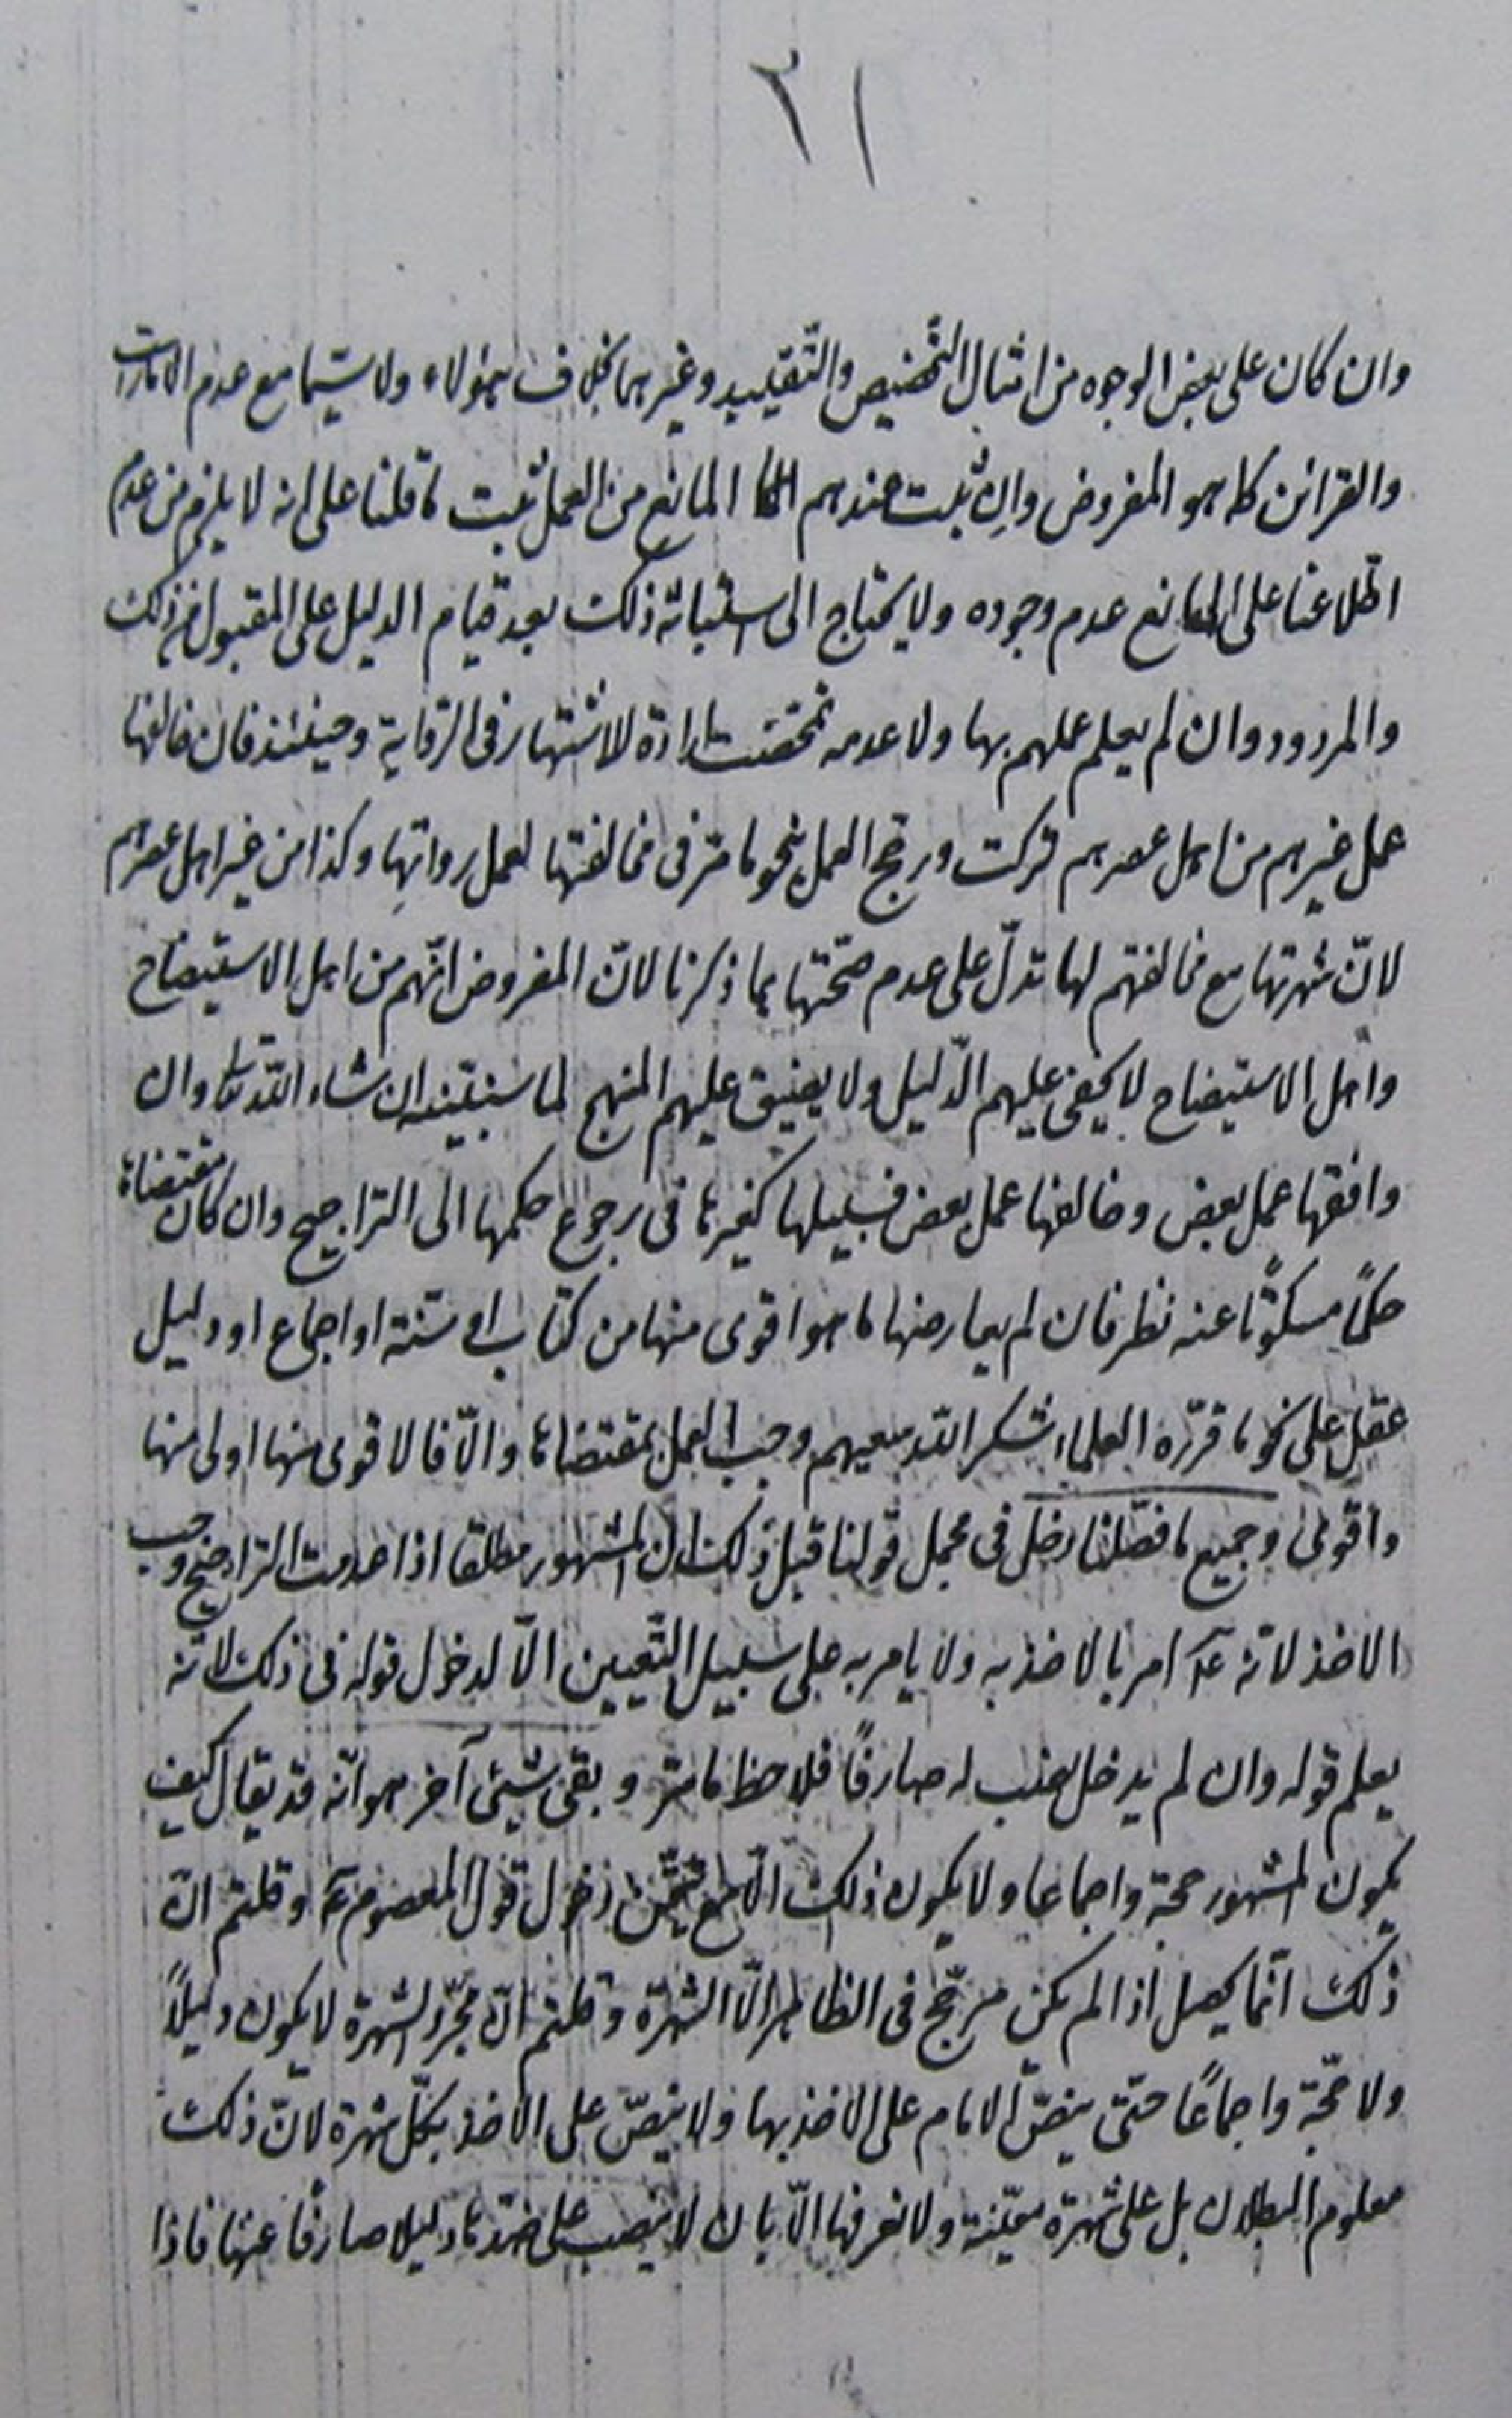 ٢١
وان كان على بعض الوجوه من امثال التخصيص والتقييد وغيرهما بخلاف هؤلاء ولا سيّما مع عدم الامارات
والقرائن كما هو المفروض وان ثبت عندهم المانع من العمل ثبت ما قلنا على انه لا يلزم من عدم
اطلاعنا على المانع عدم وجوده ولا يحتاج الى استبانة ذلك بعد قيام الدليل على المقبول من ذلك
والمردود وان لم يعلم عملهم بها ولا عدمه تمحّضت ارادة الاشتهار فى الرّواية وحينئذ فان خالفها
عمل غيرهم من اهل عصرهم تركت ورجّح العمل بنحو ما مرّ فى مخالفتها لعمل رواتها وكذا من غير اهل عصرهم
لانّ شهرتها مع مخالفتهم لها تدلّ على عدم صحّتها بما ذكرنا لانّ المفروض انّهم من اهل الاستيضاح
واهل الاستيضاح لا يخفى عليهم الدّليل ولا يضيق عليهم المنهج لما سنبيّنه ان شاء اللّه تعالى وان
وافقها عمل بعض وخالفها عمل بعض فسبيلها كغيرها فى رجوع حكمها الى التراجيح وان كان مقتضاها
حكمًا مسكوتًا عنه نظر فان لم يعارضها ما هو اقوى منها من كتاب او سنّة او اجماع او دليل
عقل على نحو ما قرّره العلماء شكر اللّه سعيهم وجب العمل بمقتضاها والّا فالاقوى منها اولى منها
واقوى وجميع ما فصّلنا دخل فى مجمل قولنا قبل ذلك ان المشهور مطلقا اذا عدمت التراجيح وجب
الاخذ لانّه عۤ امر بالاخذ به ولا يامر به على سبيل التّعيين الّا لدخول قوله فى ذلك لانّه
يعلم قوله وان لم يدخل لنصب له صارفًا فلاحظ ما مرّ و بقى شيئ آخر هو انّه قد يقال كيف
يكون المشهور حجة واجماعا ولا يكون ذلك الّا مع تحقّق دخول قول المعصوم عۤ وقلتم انّ
ذلك انّما يحصل اذا لم يكن مرجّح فى الظاهر الّا الشهرة وقلتم انّ مجرّد الشهرة لا يكون دليلًا
ولا حجّة واجماعًا حتّى ينصّ الامام على الاخذ بها ولا ينصّ على الاخذ بكلّ شهرة لانّ ذلك
معلوم البطلان بل على شهرة معيّنة ولا نعرفها الّا بان لا ينصب على ضدّها دليلا صارفًا عنها فاذا